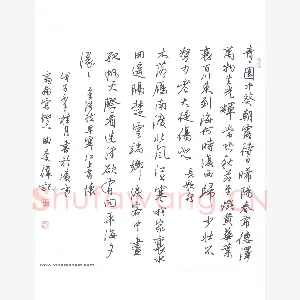 青園中葵朝露待日晞陽春布德澤
萬物生光輝常恐秋節至焜黃華葉
衰百川東到海何時復西歸少壯不
努力老大徒傷悲 長歌行
木落雁南度北風江上寒我家襄水
曲遙隔楚雲端鄉淚客中盡
孤帆天際看迷津欲有問平海夕
漫〻 孟浩然早寒江上有懷
Shufawang.cn